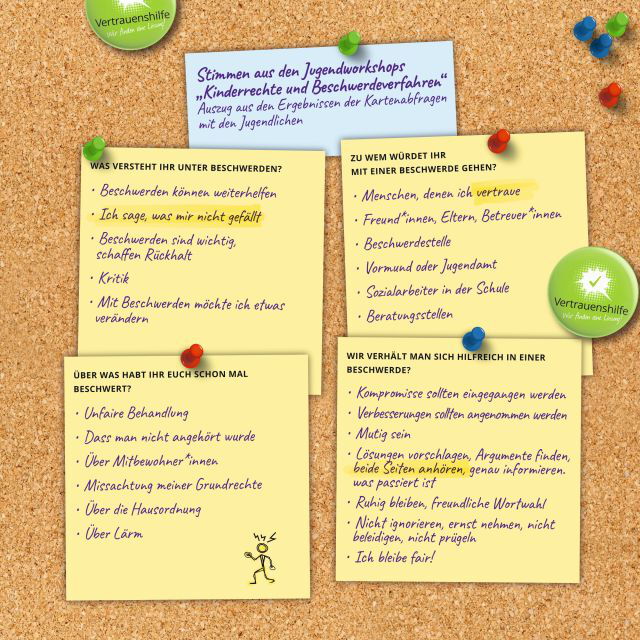 Vertrauenshilfe
Wir finden eine Lösung!
Stimmen aus den Jugendworkshops
„Kinderrechte und Beschwerdeverfahren“
Auszug aus den Ergebnissen der Kartenabfragen
mit den Jugendlichen
WAS VERSTEHT IHR UNTER BESCHWERDEN?
• Beschwerden können weiterhelfen
• Ich sage, was mir nicht gefällt
• Beschwerden sind wichtig,
schaffen Rückhalt
• Kritik
• Mit Beschwerden möchte ich etwas
verändern
ZU WEM WÜRDET IHR
MIT EINER BESCHWERDE GEHEN?
• Menschen, denen ich vertraue
• Freund*innen, Eltern, Betreuer*innen
• Beschwerdestelle
• Vormund oder Jugendamt
• Sozialarbeiter in der Schule
• Beratungsstellen
Vertrauenshilfe
Wir finden eine Lösung!
ÜBER WAS HABT IHR EUCH SCHON MAL
BESCHWERT?
• Unfaire Behandlung
• Dass man nicht angehört wurde
• Über Mitbewohner*innen
• Missachtung meiner Grundrechte
• Über die Hausordnung
• Über Lärm
WIR VERHÄLT MAN SICH HILFREICH IN EINER
BESCHWERDE?
• Kompromisse sollten eingegangen werden
• Verbesserungen sollten angenommen werden
• Mutig sein
• Lösungen vorschlagen, Argumente finden,
beide Seiten anhören, genau informieren.
was passiert ist
• Ruhig bleiben, freundliche Wortwahl
• Nicht ignorieren, ernst nehmen, nicht
beleidigen, nicht prügeln
• Ich bleibe fair!